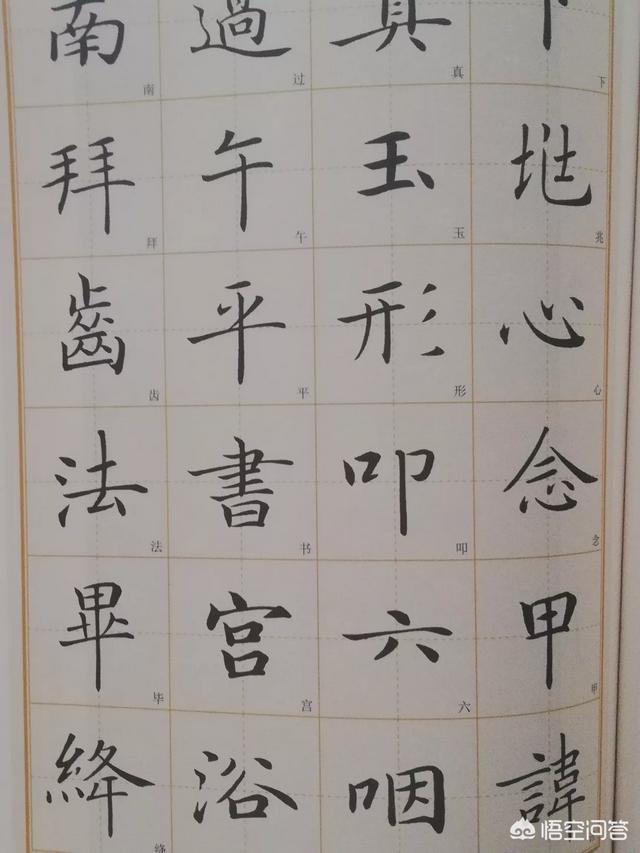 南 過 真 下
南 过 真 下
拜 午 玉
拜 午 玉 兆
齒 平 形 心
齿 平 形 心
法 書 叩 念
法 书 叩 念
畢 宮 六 甲
毕 宫 六 甲
絳 浴 咽 諱
绛
悟空问答